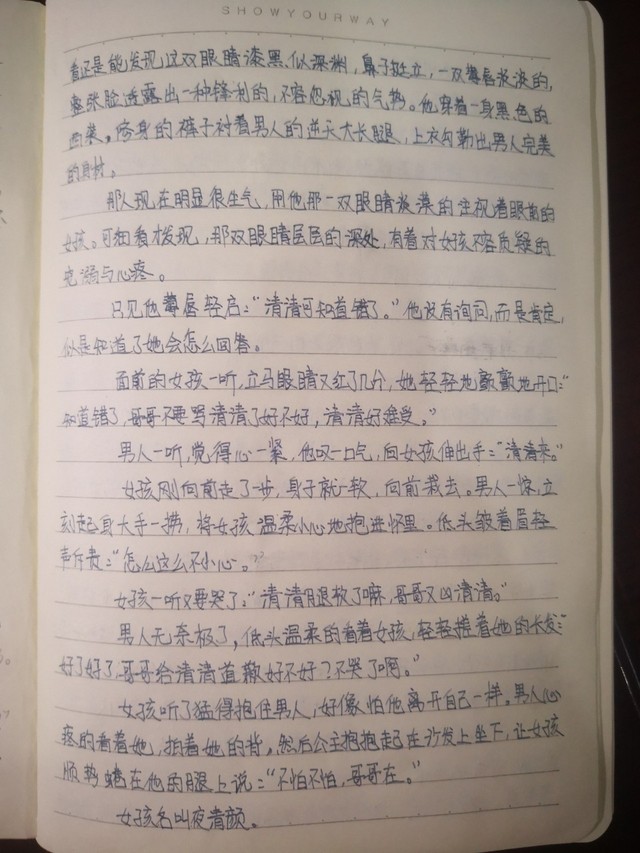 SHOWYOURWAY
看还是能发现这双眼睛漆黑、似深渊，鼻子挺立，一双薄唇淡淡的，
整张脸透露出一种锋利的，不容忽视的气势。他穿着一身黑色的
西装。修身的裤子衬着男人的逆天大长腿，上衣勾勒出男人完美
的身材。
那人现在明显很生气，用他那一双眼睛淡漠的注视着眼前的
女孩。可细看才发现，那双眼睛层层的深处，有着对女孩不容质疑的
宠溺与心疼。
只见他薄唇轻启："清清可知道错了。"他没有询问，而是肯定，
似是知道了她会怎么回答。
面前的女孩一听，立马眼睛又红了几分，她轻轻地颤颤地开口："
知道错了，哥哥不要骂清清了好不好，清清好难受。"
男人一听，觉得心一紧，他叹一口气，向女孩伸出手："清清来。"
女孩刚向前走了一步，身子就一软，向前栽去。男人一惊，立
刻起身大手一捞，将女孩温柔小心地抱进怀里。低头皱着眉轻
声斥责："怎么这么不小心。"
女孩一听又要哭了："清清腿软了嘛，哥哥又凶清清。"
男人无奈极了，低头温柔的看着女孩，轻轻搓着她的长发："
好了好了，哥哥给清清道歉好不好？不哭了啊。"
女孩听了猛得抱住男人，好像怕他离开自己一样。男人心
疼的看着她，拍着她的背。然后公主抱抱起在沙发上坐下，让女孩
顺势蜷在他的腿上说："不怕不怕，哥哥在。"
女孩名叫夜清颜。